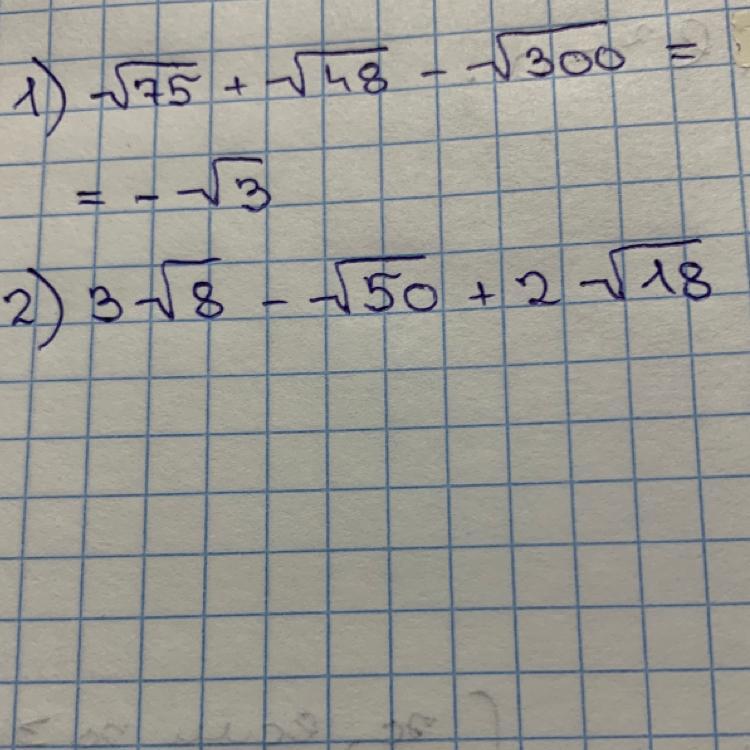 1) √75 + √48 - √300 =
= - √3
2) 3√8 - √50 + 2√18